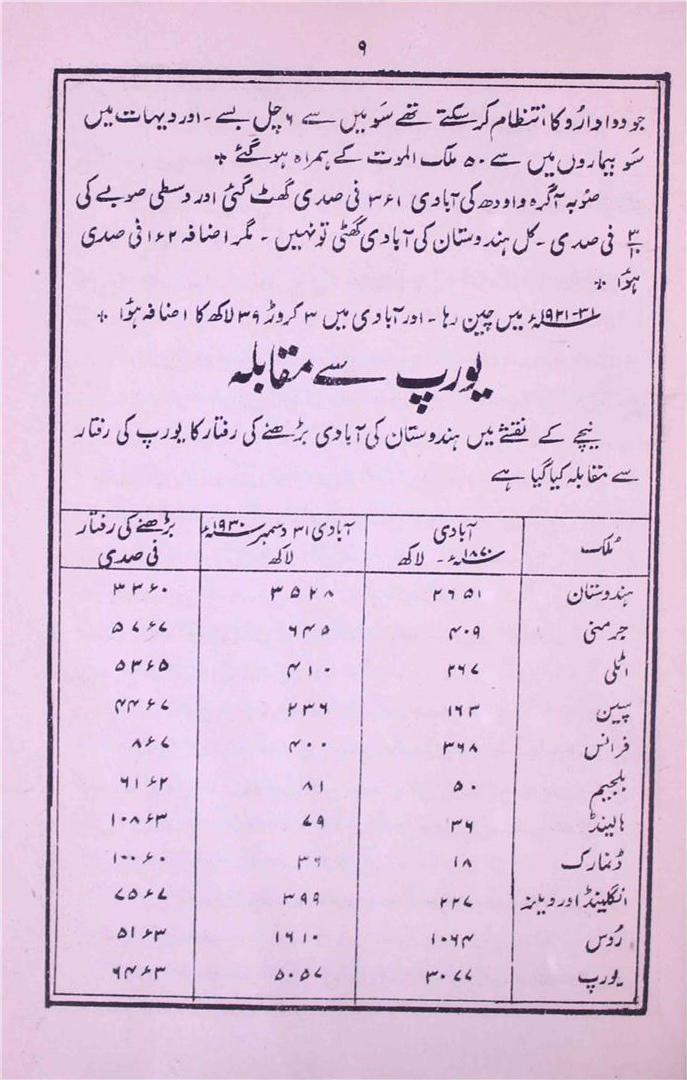 ۹
جو دوا دارُو کا انتظام کر سکتے تھے سَو میں سے ۶ چل بسے ۔ اور دیہات میں
سَو بیماروں میں سے ۵۰ ملک الموت کے ہمراہ ہو گئے ٭
صوبہ آگرہ و اودھ کی آبادی ۳٫۱ فی صدی گھٹ گئی اور وسطی صوبے کی
فی صدی ۔ کل ہندوستان کی آبادی گھٹی تو نہیں ۔ مگر اضافہ ۱٫۲ فی صدی
ہؤا ٭
۳۱-۱۹۲۱ء میں چین رہا ۔ اور آبادی میں ۳ کروڑ ۳۹ لاکھ کا اضافہ ہؤا ٭
یورپ سے مقابلہ
نیچے کے نقشے میں ہندوستان کی آبادی بڑھنے کی رفتار کا یورپ کی رفتار
سے مقابلہ کیا گیا ہے
مُلک | آبادی ۱۸۷۰ء ۔ لاکھ | آبادی ۳۱ دسمبر ۱۹۳۰ء لاکھ | بڑھنے کی رفتار فی صدی
ہندوستان | ۲۶۵۱ | ۳۵۲۸ | ۳۳٫۰
جرمنی | ۴۰۹ | ۶۴۵ | ۵۷٫۷
اٹلی | ۲۶۷ | ۴۱۰ | ۵۳٫۵
سپین | ۱۶۳ | ۲۳۶ | ۴۴٫۷
فرانس | ۳۶۸ | ۴۰۰ | ۸٫۷
بلجیم | ۵۰ | ۸۱ | ۶۱٫۲
ہالینڈ | ۳۶ | ۷۹ | ۱۰۸٫۳
ڈنمارک | ۱۸ | ۳۶ | ۱۰۰٫۰
انگلینڈ اور ویلز | ۲۲۷ | ۳۹۹ | ۷۵٫۷
رُوس | ۱۰۶۴ | ۱۶۱۰ | ۵۱٫۳
یورپ | ۳۰۷۷ | ۵۰۵۷ | ۶۴٫۳